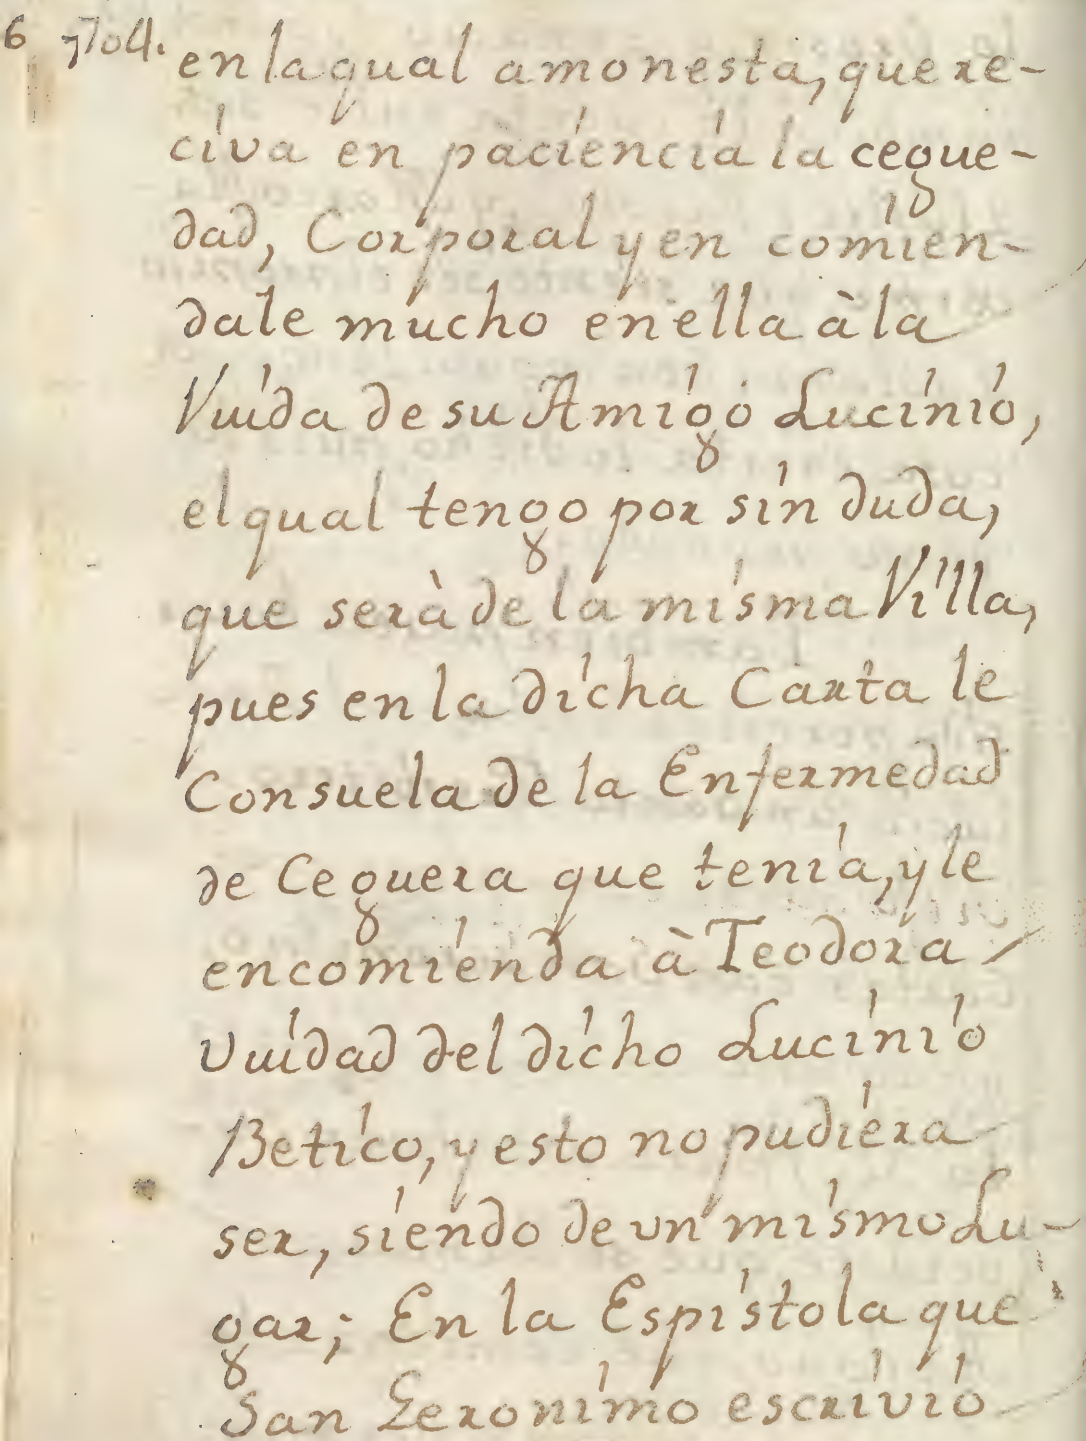 6 7704.
en la qual amonesta, que re-
civa en pàciencia la cegue-
dad, Corporal y en comien-
dale mucho en ella à la
Vuida de su Amigo Lucinio,
el qual tengo por sin duda,
que serà de la misma Villa,
pues en la dicha Carta le
Consuela de la Enfermedad
de Ceguera que tenia, y le
encomienda à Teodora
Vuidad del dicho Lucinio
Betico, y esto no pudiera
ser, siendo de un mismo Lu-
gar; En la Espistola que
San Geronimo escrivio